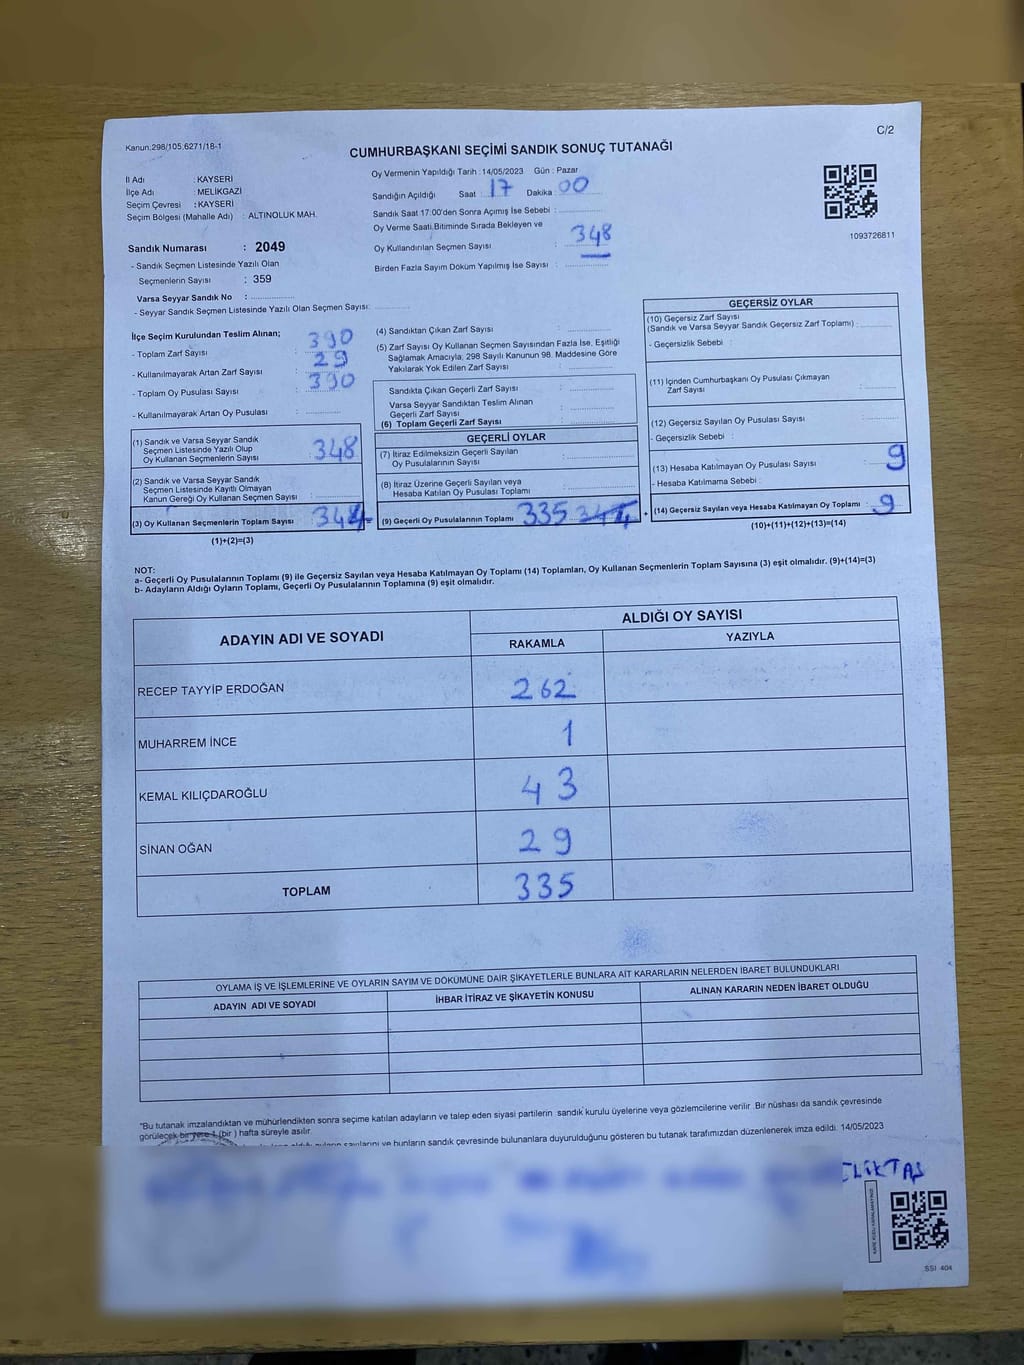 Kanun:298/105,6271/18-1
C/2
CUMHURBAŞKANI SEÇİMİ SANDIK SONUÇ TUTANAĞI
İl Adı : KAYSERİ
İlçe Adı : MELİKGAZİ
Seçim Çevresi : KAYSERİ
Seçim Bölgesi (Mahalle Adı) : ALTINOLUK MAH.
Oy Vermenin Yapıldığı Tarih : 14/05/2023 Gün : Pazar
Sandığın Açıldığı Saat : 17 Dakika : 00
Sandık Saat 17:00'den Sonra Açımış İse Sebebi :
Oy Verme Saati Bitiminde Sırada Bekleyen ve
Oy Kullandırılan Seçmen Sayısı : 348
Birden Fazla Sayım Döküm Yapılmış İse Sayısı :
1093726811
Sandık Numarası : 2049
- Sandık Seçmen Listesinde Yazılı Olan
Seçmenlerin Sayısı : 359
Varsa Seyyar Sandık No :
- Seyyar Sandık Seçmen Listesinde Yazılı Olan Seçmen Sayısı:
İlçe Seçim Kurulundan Teslim Alınan;
- Toplam Zarf Sayısı : 390
- Kullanılmayarak Artan Zarf Sayısı : 29
- Toplam Oy Pusulası Sayısı : 390
- Kullanılmayarak Artan Oy Pusulası :
(1) Sandık ve Varsa Seyyar Sandık
Seçmen Listesinde Yazılı Olup
Oy Kullanan Seçmenlerin Sayısı : 348
(2) Sandık ve Varsa Seyyar Sandık
Seçmen Listesinde Kayıtlı Olmayan
Kanun Gereği Oy Kullanan Seçmen Sayısı :
(3) Oy Kullanan Seçmenlerin Toplam Sayısı : 344
(1)+(2)=(3)
(4) Sandıktan Çıkan Zarf Sayısı :
(5) Zarf Sayısı Oy Kullanan Seçmen Sayısından Fazla İse, Eşitliği
Sağlamak Amacıyla, 298 Sayılı Kanunun 98. Maddesine Göre
Yakılarak Yok Edilen Zarf Sayısı :
Sandıkta Çıkan Geçerli Zarf Sayısı :
Varsa Seyyar Sandıktan Teslim Alınan
Geçerli Zarf Sayısı :
(6) Toplam Geçerli Zarf Sayısı :
GEÇERLİ OYLAR
(7) İtiraz Edilmeksizin Geçerli Sayılan
Oy Pusulalarının Sayısı :
(8) İtiraz Üzerine Geçerli Sayılan veya
Hesaba Katılan Oy Pusulası Toplamı :
(9) Geçerli Oy Pusulalarının Toplamı : 335 344
GEÇERSİZ OYLAR
(10) Geçersiz Zarf Sayısı
(Sandık ve Varsa Seyyar Sandık Geçersiz Zarf Toplamı) :
- Geçersizlik Sebebi :
(11) İçinden Cumhurbaşkanı Oy Pusulası Çıkmayan
Zarf Sayısı :
(12) Geçersiz Sayılan Oy Pusulası Sayısı :
- Geçersizlik Sebebi :
(13) Hesaba Katılmayan Oy Pusulası Sayısı : 9
- Hesaba Katılmama Sebebi :
+ (14) Geçersiz Sayılan veya Hesaba Katılmayan Oy Toplamı : 9
(10)+(11)+(12)+(13)=(14)
NOT:
a- Geçerli Oy Pusulalarının Toplamı (9) ile Geçersiz Sayılan veya Hesaba Katılmayan Oy Toplamı (14) Toplamları, Oy Kullanan Seçmenlerin Toplam Sayısına (3) eşit olmalıdır. (9)+(14)=(3)
b- Adayların Aldığı Oyların Toplamı, Geçerli Oy Pusulalarının Toplamına (9) eşit olmalıdır.
ADAYIN ADI VE SOYADI
ALDIĞI OY SAYISI
RAKAMLA YAZIYLA
RECEP TAYYİP ERDOĞAN 262
MUHARREM İNCE 1
KEMAL KILIÇDAROĞLU 43
SİNAN OĞAN 29
TOPLAM 335
OYLAMA İŞ VE İŞLEMLERİNE VE OYLARIN SAYIM VE DÖKÜMÜNE DAİR ŞİKAYETLERLE BUNLARA AİT KARARLARIN NELERDEN İBARET BULUNDUKLARI
ADAYIN ADI VE SOYADI İHBAR İTİRAZ VE ŞİKAYETİN KONUSU ALINAN KARARIN NEDEN İBARET OLDUĞU
"Bu tutanak imzalandıktan ve mühürlendikten sonra seçime katılan adayların ve talep eden siyasi partilerin sandık kurulu üyelerine veya gözlemcilerine verilir. Bir nüshası da sandık çevresinde
görülecek bir yere 1 (bir) hafta süreyle asılır.
sayılarını ve bunların sandık çevresinde bulunanlara duyurulduğunu gösteren bu tutanak tarafımızdan düzenlenerek imza edildi. 14/05/2023
SSI 404